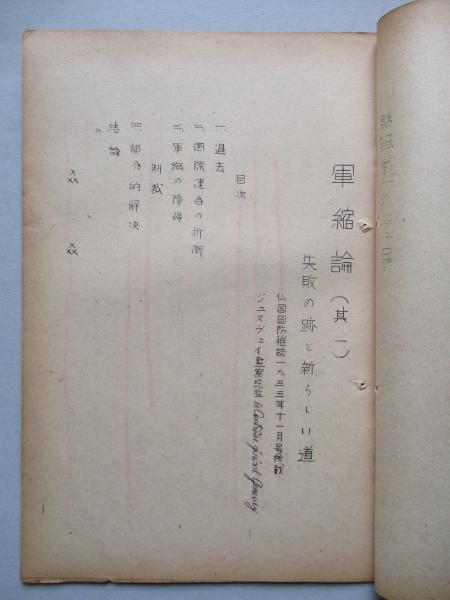 軍縮論(其一)
失敗の跡と新らしい道
仏国国防雑誌一九五五年十一月号掲載
ジユヌヴェイ監察総監
目次
一、過去
二、国際連合の折衝
三、軍縮の障碍
制裁
四、部分的解決
結論